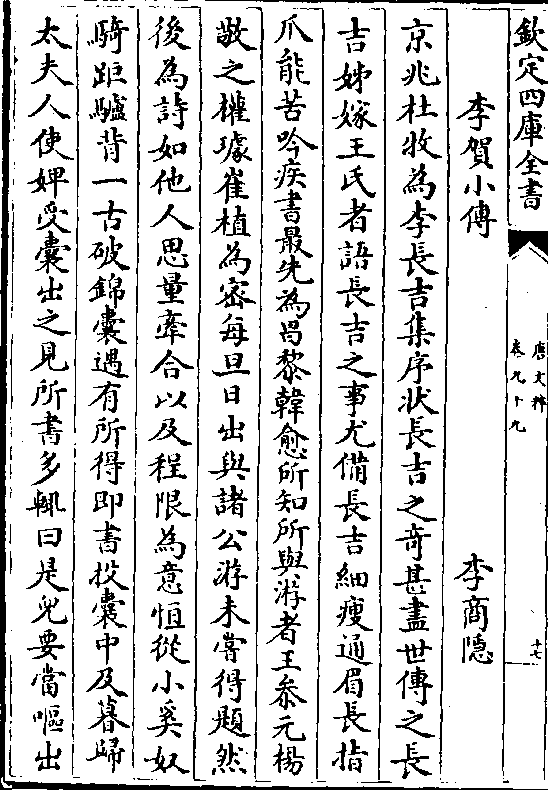 欽定四庫全書
唐文粹
卷九十九
十七
李賀小傳 李商隱
京兆杜牧為李長吉集序狀長吉之奇甚盡世傳之長
吉姊嫁王氏者語長吉之事尤備長吉細瘦通眉長指
爪能苦吟疾書最先為昌黎韓愈所知所與游者王叅元楊
敬之權璩崔植為密每旦日出與諸公游未嘗得題然
後為詩如他人思量牽合以及程限為意恒從小奚奴
騎距驢背一古破錦囊遇有所得即書投囊中及暮歸
太夫人使婢受囊出之見所書多輒曰是兒要當嘔出